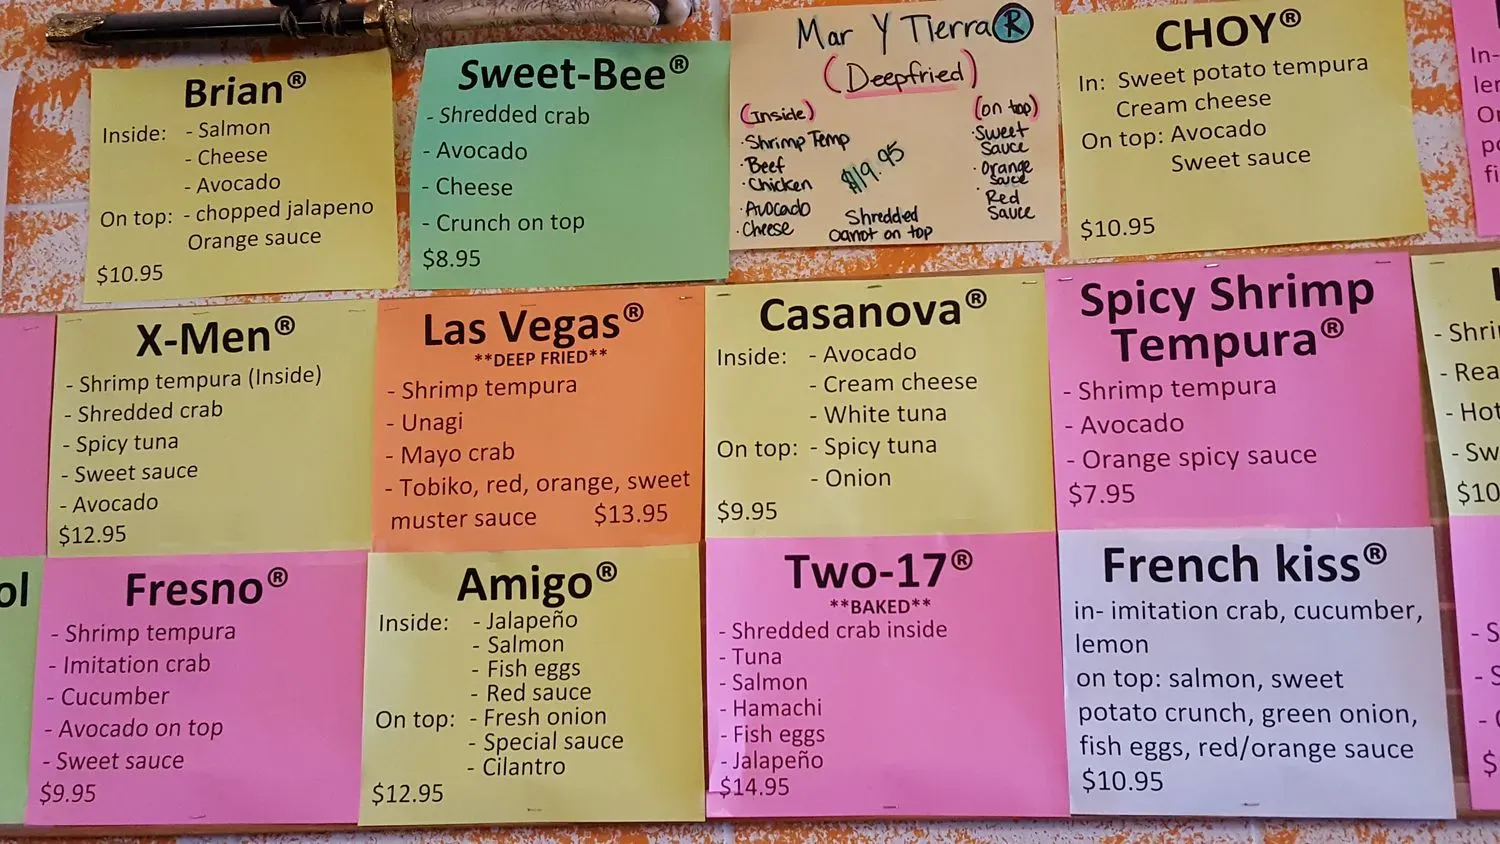 Brian®
Inside: - Salmon
- Cheese
- Avocado
On top: - chopped jalapeno
Orange sauce
$10.95
Sweet-Bee®
- Shredded crab
- Avocado
- Cheese
- Crunch on top
$8.95
Mar Y Tierra®
(Deepfried)
(Inside)
·Shrimp Temp
·Beef
·Chicken
·Avocado
·Cheese
$19.95
Shredded
carrot on top
(on top)
·Sweet
Sauce
·Orange
Sauce
·Red
Sauce
CHOY®
In: Sweet potato tempura
Cream cheese
On top: Avocado
Sweet sauce
$10.95
In-
X-Men®
- Shrimp tempura (Inside)
- Shredded crab
- Spicy tuna
- Sweet sauce
- Avocado
$12.95
Las Vegas®
**DEEP FRIED**
- Shrimp tempura
- Unagi
- Mayo crab
- Tobiko, red, orange, sweet
muster sauce $13.95
Casanova®
Inside: - Avocado
- Cream cheese
- White tuna
On top: - Spicy tuna
- Onion
$9.95
Spicy Shrimp
Tempura®
- Shrimp tempura
- Avocado
- Orange spicy sauce
$7.95
- Shri
- Rea
- Hot
- Sw
$10
ol
Fresno®
- Shrimp tempura
- Imitation crab
- Cucumber
- Avocado on top
- Sweet sauce
$9.95
Amigo®
Inside: - Jalapeño
- Salmon
- Fish eggs
- Red sauce
On top: - Fresh onion
- Special sauce
- Cilantro
$12.95
Two-17®
**BAKED**
- Shredded crab inside
- Tuna
- Salmon
- Hamachi
- Fish eggs
- Jalapeño
$14.95
French kiss®
in- imitation crab, cucumber,
lemon
on top: salmon, sweet
potato crunch, green onion,
fish eggs, red/orange sauce
$10.95